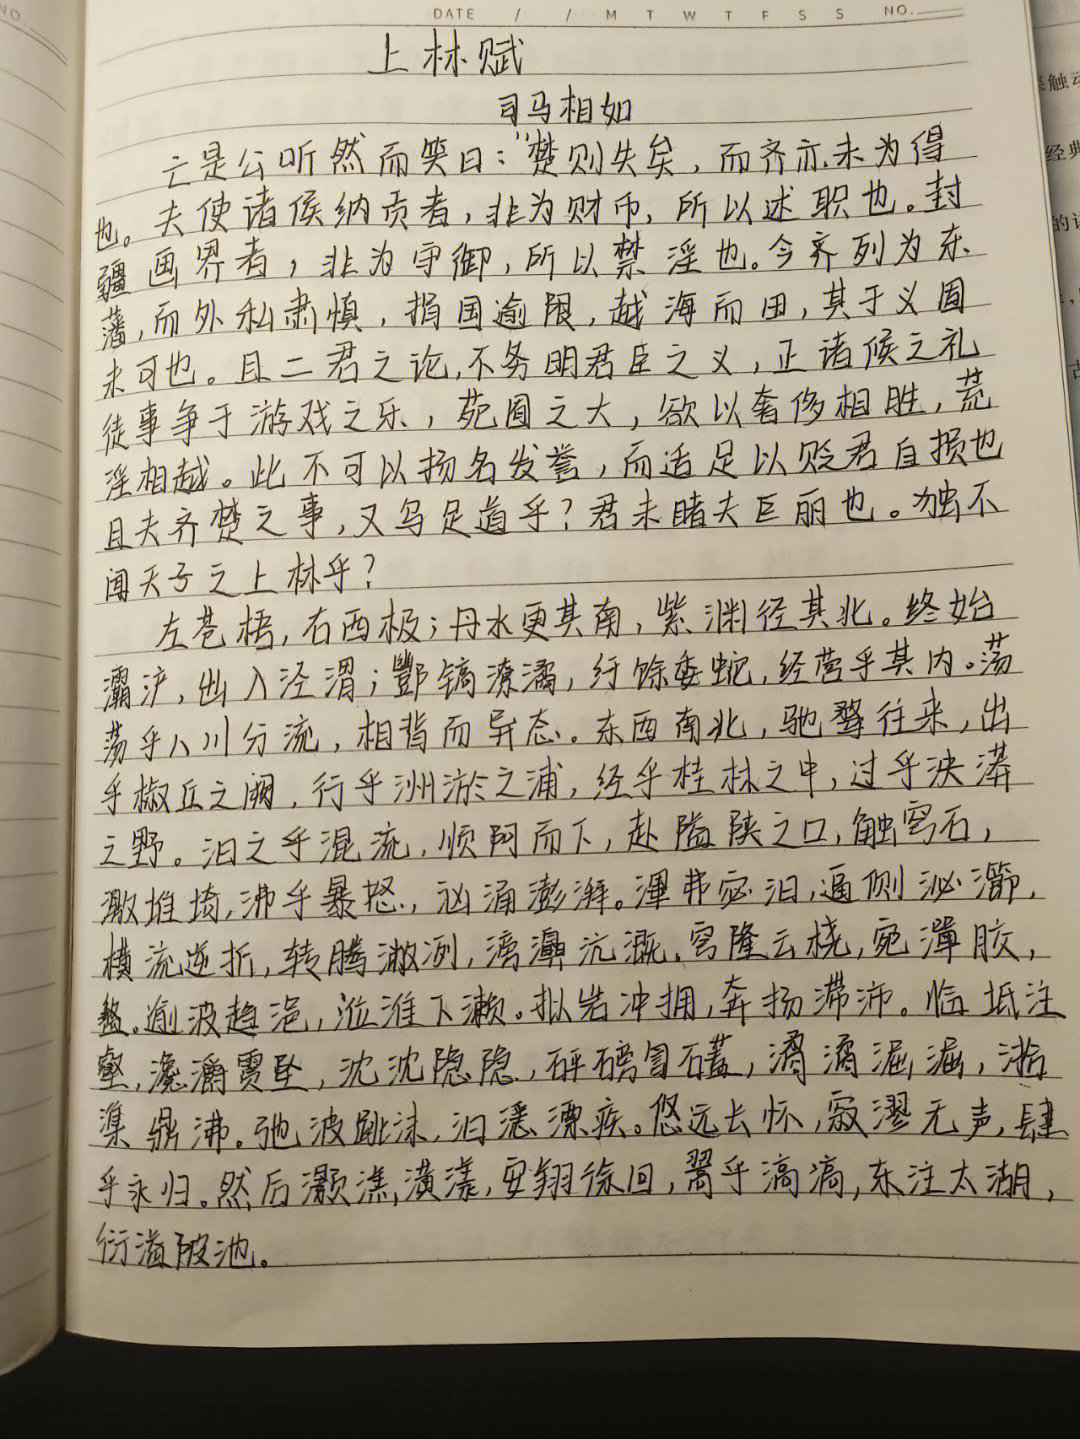 NO.
DATE / / M T W T F S S NO.
上林赋
司马相如
亡是公听然而笑曰："楚则失矣，而齐亦未为得
也。夫使诸侯纳贡者，非为财币，所以述职也。封
疆画界者，非为守御，所以禁淫也。今齐列为东
藩，而外私肃慎，捐国逾限，越海而田，其于义固
未可也。且二君之论，不务明君臣之义，正诸候之礼
徒事争于游戏之乐，苑囿之大，欲以奢侈相胜，荒
淫相越。此不可以扬名发誉，而适足以贬君自损也
且夫齐楚之事，又乌足道乎？君未睹夫巨丽也。独不
闻天子之上林乎？
左苍梧，右西极；丹水更其南，紫渊径其北。终始
灞浐，出入泾渭；酆镐潦潏，纡馀委蛇，经营乎其内。荡
荡乎八川分流，相背而异态。东西南北，驰骛往来，出
乎椒丘之阙，行乎洲淤之浦，经乎桂林之中，过乎泱漭
之野。汩乎混流，顺阿而下，赴隘陕之口，触穹石，
激堆埼，沸乎暴怒，汹涌澎湃。滭弗宓汩，逼侧泌瀄，
横流逆折，转腾潎洌，滂濞沆溉。穹隆云桡，宛潬胶
盭，逾波趋浥，涖涖下濑。批岩冲拥，奔扬滞沛。临坻注
壑，瀺灂霣坠，沈沈隐隐，砰磅訇礚，潏潏淈淈，湁
潗鼎沸。驰波跳沫，汩濦漂疾。悠远长怀，寂漻无声，肆
乎永归。然后灏溔潢漾，安翔徐回，翯乎滈滈，东注太湖，
衍溢陂池。